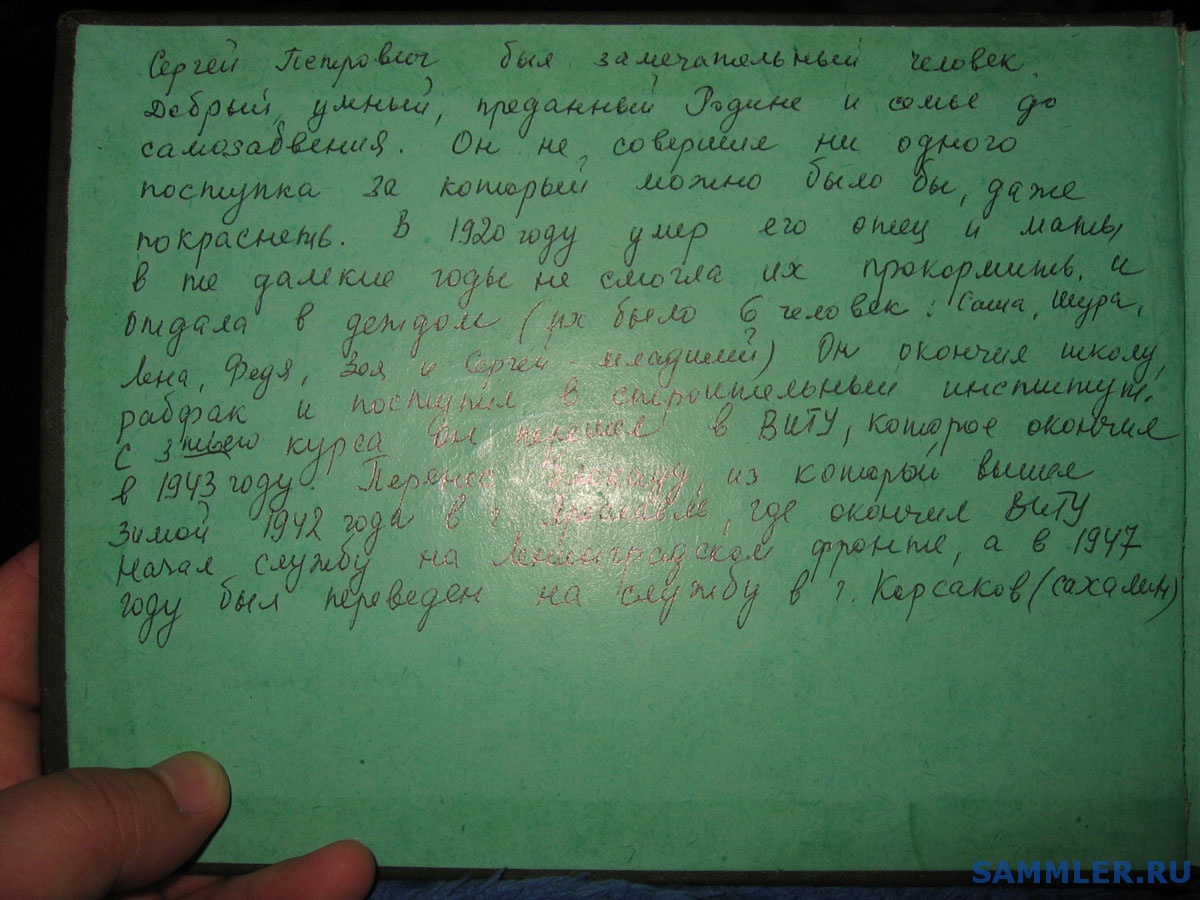 Сергей Петрович был замечательный человек.
Добрый, умный, преданный Родине и семье до
самозабвения. Он не совершил ни одного
поступка за который можно было бы, даже
покраснеть. В 1920 году умер его отец и мать
в те далекие годы не смогла их прокормить и
отдала в детдом (их было 6 человек: Саша, Шура,
Лена, Федя, Зоя и Сергей - младший) Он окончил школу,
рабфак и поступил в строительный институт.
С 3тьего курса он перешел в ВИТУ, которое окончил
в 1943 году. Перенес блокаду, из который вышел
зимой 1942 года в г. Ярославле, где окончил ВИТУ
Начал службу на Ленинградском фронте, а в 1947
году был переведен на службу в г. Корсаков (сахалин)
SAMMLER.RU